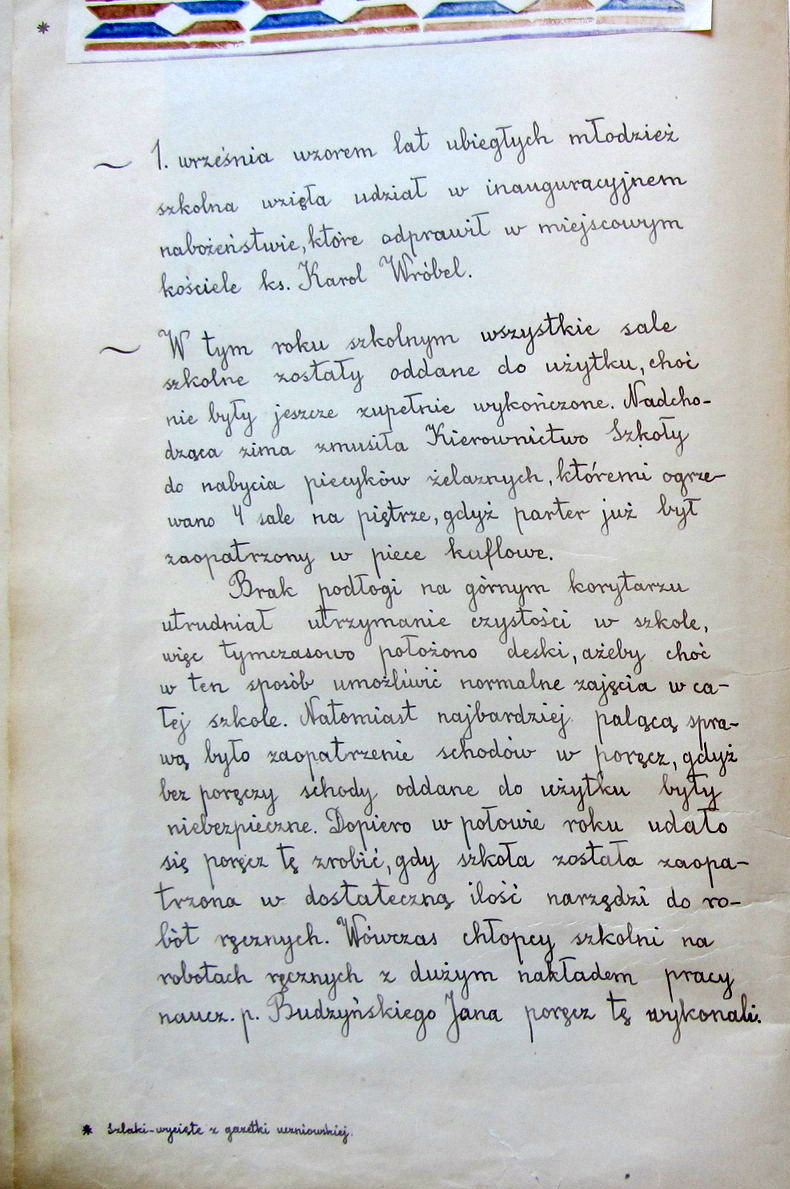 *
~ 1. września wzorem lat ubiegłych młodzież
szkolna wzięła udział w inauguracyjnem
nabożeństwie, które odprawił w miejscowym
kościele ks. Karol Wróbel.
~ W tym roku szkolnym wszystkie sale
szkolne zostały oddane do użytku, choć
nie były jeszcze zupełnie wykończone. Nadcho-
dząca zima zmusiła Kierownictwo Szkoły
do nabycia piecyków żelaznych, któremi ogrze-
wano 4 sale na piętrze, gdyż parter już był
zaopatrzony w piece kaflowe.
Brak podłogi na górnym korytarzu
utrudniał utrzymanie czystości w szkole,
więc tymczasowo położono deski, ażeby choć
w ten sposób umożliwić normalne zajęcia w ca-
łej szkole. Natomiast najbardziej palącą spra-
wą było zaopatrzenie schodów w poręcz, gdyż
bez poręczy schody oddane do użytku były
niebezpieczne. Dopiero w połowie roku udało
się poręcz tę zrobić, gdy szkoła została zaopa-
trzona w dostateczną ilość narzędzi do ro-
bót ręcznych. Wówczas chłopcy szkolni na
robotach ręcznych z dużym nakładem pracy
naucz. p. Budzyńskiego Jana poręcz tę wykonali.
* Szlaki-wycięte z gazetki uczniowskiej.